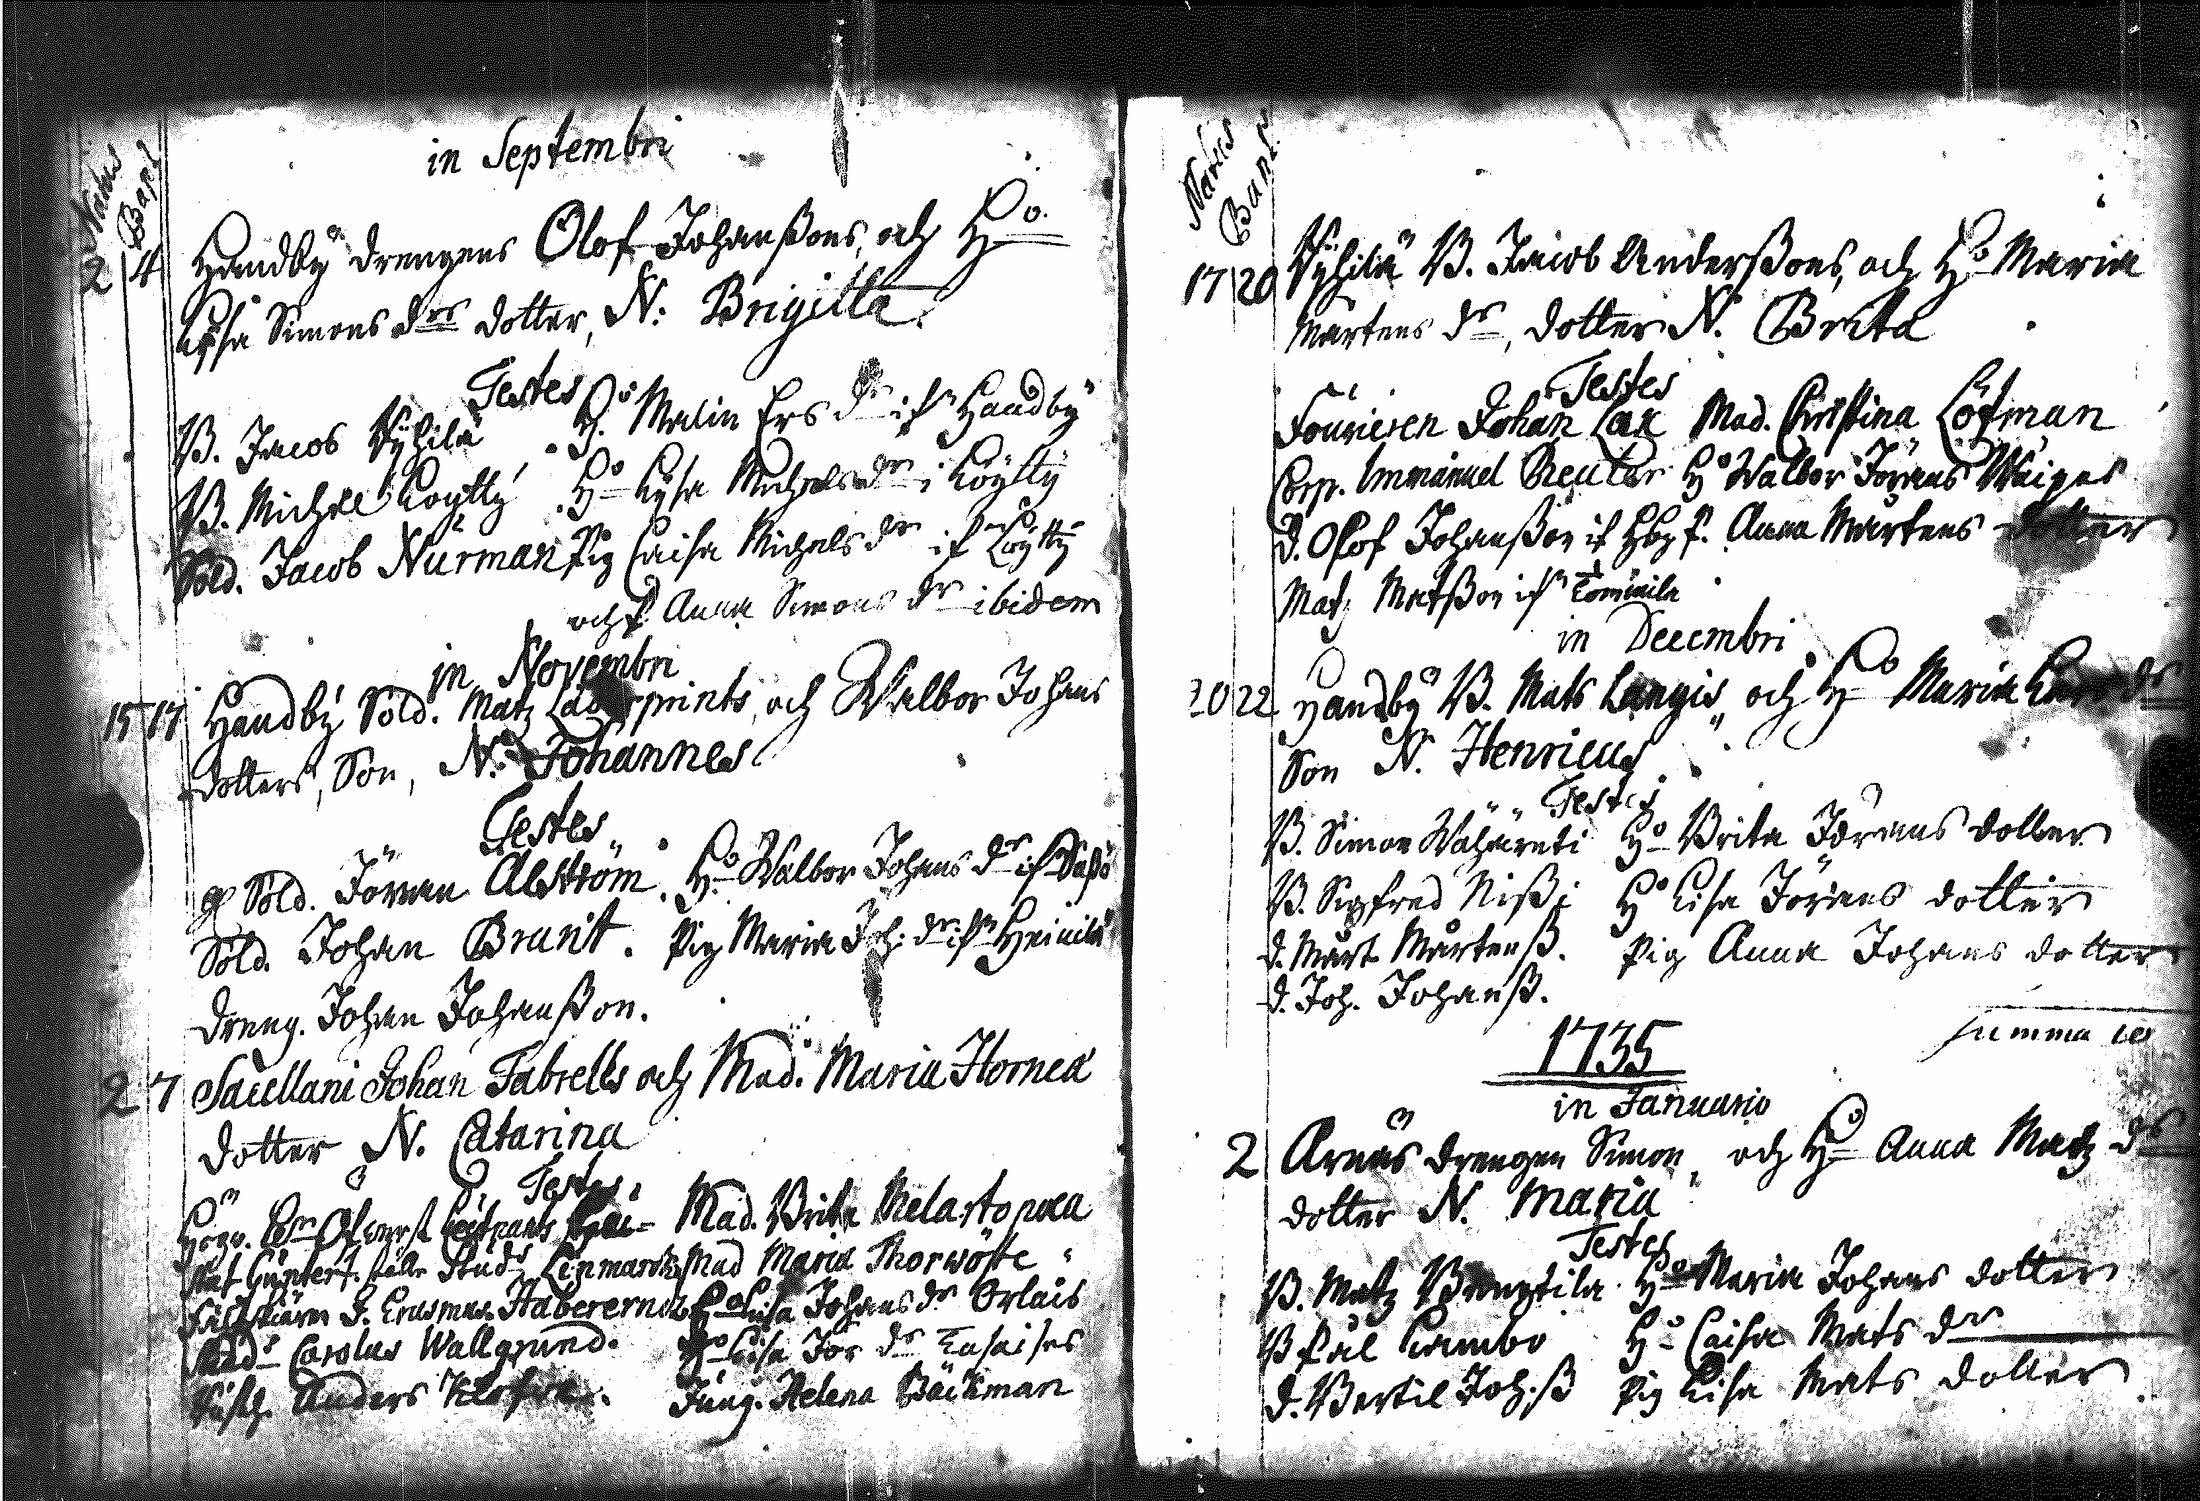 in Septembri
Natus Bapt
2 4 Handby drengens Olof Johanßons, och Ho
Lisa Simons drs dotter, N: Brigitta
Testes
B. Jacob Pyhilä Ho Malin Ers dr if Handby
B. Michel Köyttÿ Ho Lisa Michels dr i Köyttÿ
Sold. Jacob Nurman Pig Caisa Michels dr if Köyttÿ
och P. Anna Simons dr ibidem
in Novembri
15 17 Handby Sold. Matz och Walbor Johans
dotters, Son, N. Johannes
Testes
Sold. Jöran Alström. Ho Walbor Johans dr if
Sold. Johan Brunt. Pig Maria Joh. dr if Heinilä
Dreng. Johan Johanßon.
2 7 Sacellani Johan och Mad. Maria Hornea
dotter N. Catarina
Testes
Mad. Brita Melartopæa
Stud. Mad Maria Thorwöste
Erasmus Lisa Johans dr Orlais
Carolus Wallgrund. Lisa Jör dr
Anders Jung. Helena Bäckman
Natus Bapt
17 20 Pyhilä B. Jacob Anderßons, och Ho Maria
Mårtens dr, dotter N. Brita
Testes
Fouriren Johan Lax Mad. Christina Löfman
Corp. Immanuel Reuter Ho Walbor Jörans
d. Olof Johanßon if P. Anna Mårtens dotter
Matz Matßon if Tomnila
in Decembri
20 22 Handby B. Mats Langis och Ho Maria drs
Son N. Henricus
Testes
B. Simon Ho Brita Jörans dotter
B. Sigfred Nißi Ho Lisa Jörans dotter
d. Mårt Mårtenß. Pig Anna Johans dotter
d. Joh. Johanß.
Summa
1735
in Januario
2 Arnäs drengen Simon och Ho Anna Matz drs
dotter N. Maria
Testes
B. Matz Ho Maria Johans dotter
B Pål Cambo Ho Caisa Mats dr
d. Bertil Joh.ß Pig Lisa Mats dotter